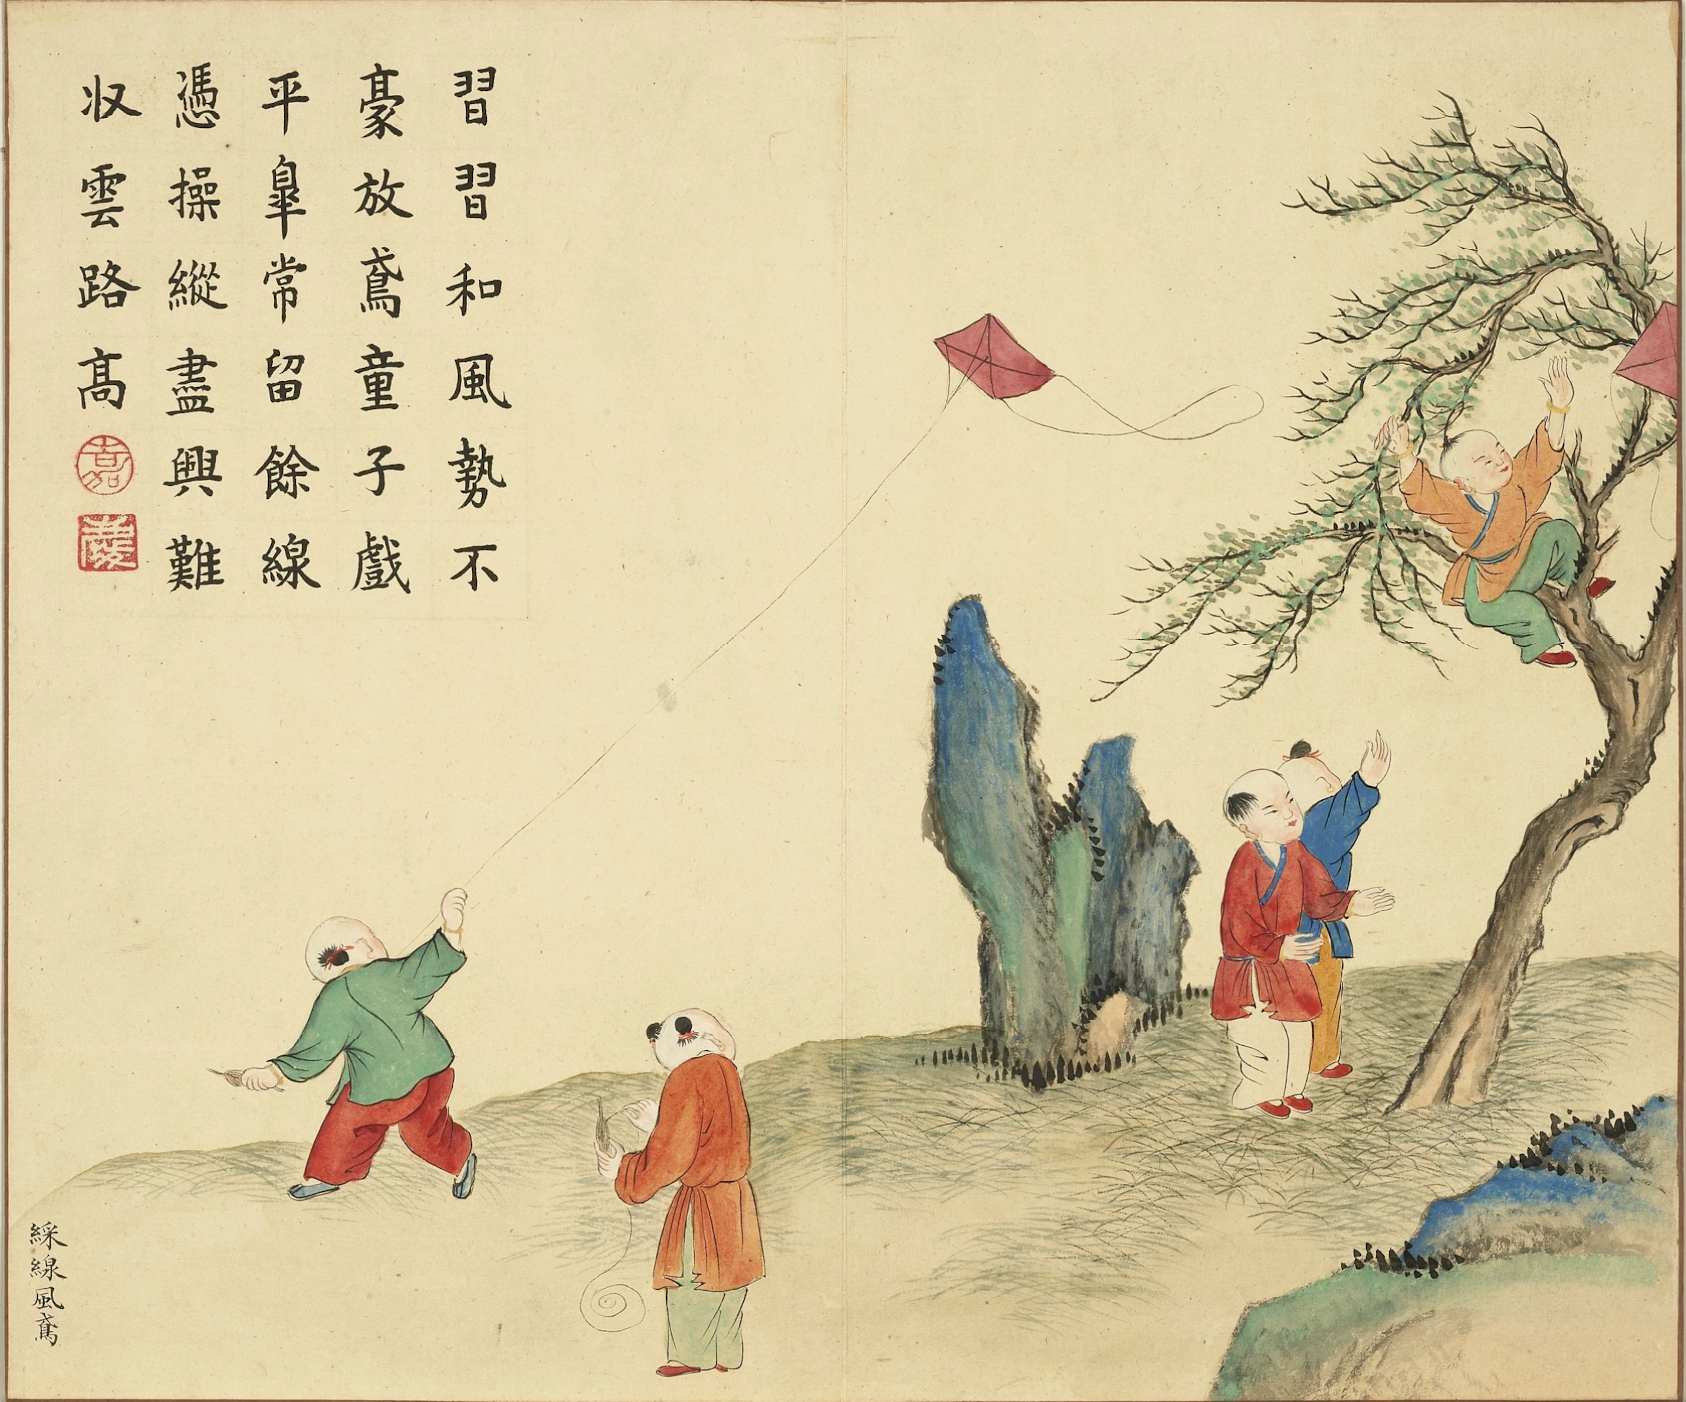 習習和風勢不
豪放鳶童子戲
平皐常留餘線
憑操縱盡興難
収雲路髙
嘉
慶
綵線風鳶